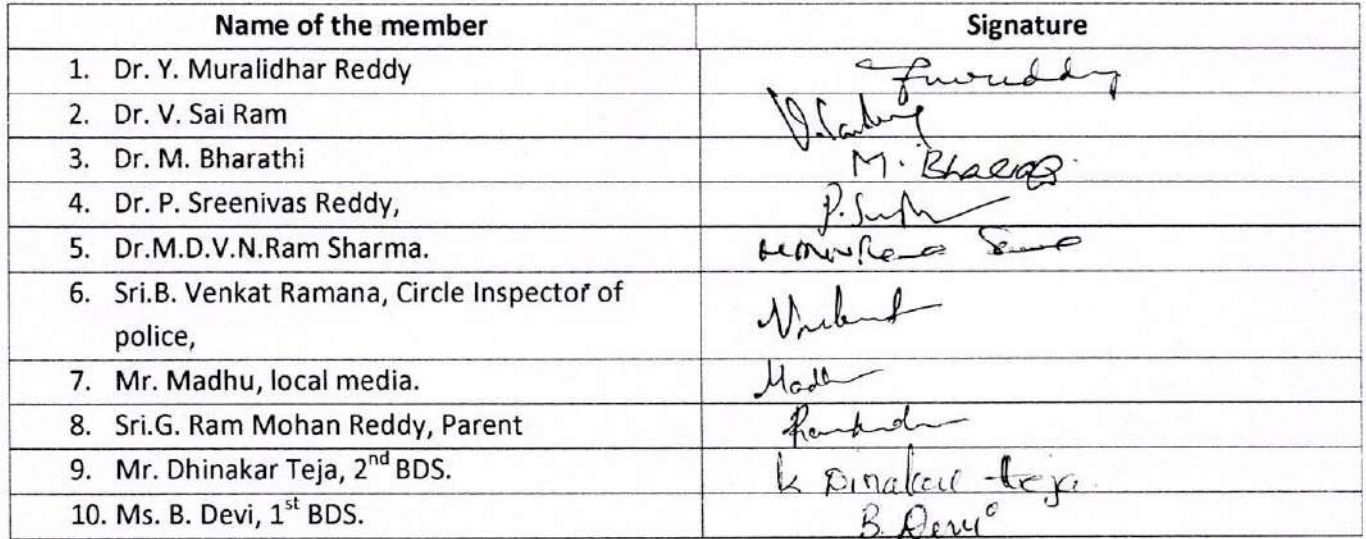 Name of the member Signature
1. Dr. Y. Muralidhar Reddy
2. Dr. V. Sai Ram
3. Dr. M. Bharathi M. Bharathi
4. Dr. P. Sreenivas Reddy,
5. Dr.M.D.V.N.Ram Sharma.
6. Sri.B. Venkat Ramana, Circle Inspector of
police,
7. Mr. Madhu, local media. Madhu
8. Sri.G. Ram Mohan Reddy, Parent
9. Mr. Dhinakar Teja, 2nd BDS. K Dinakar teja
10. Ms. B. Devi, 1st BDS. B. Devi